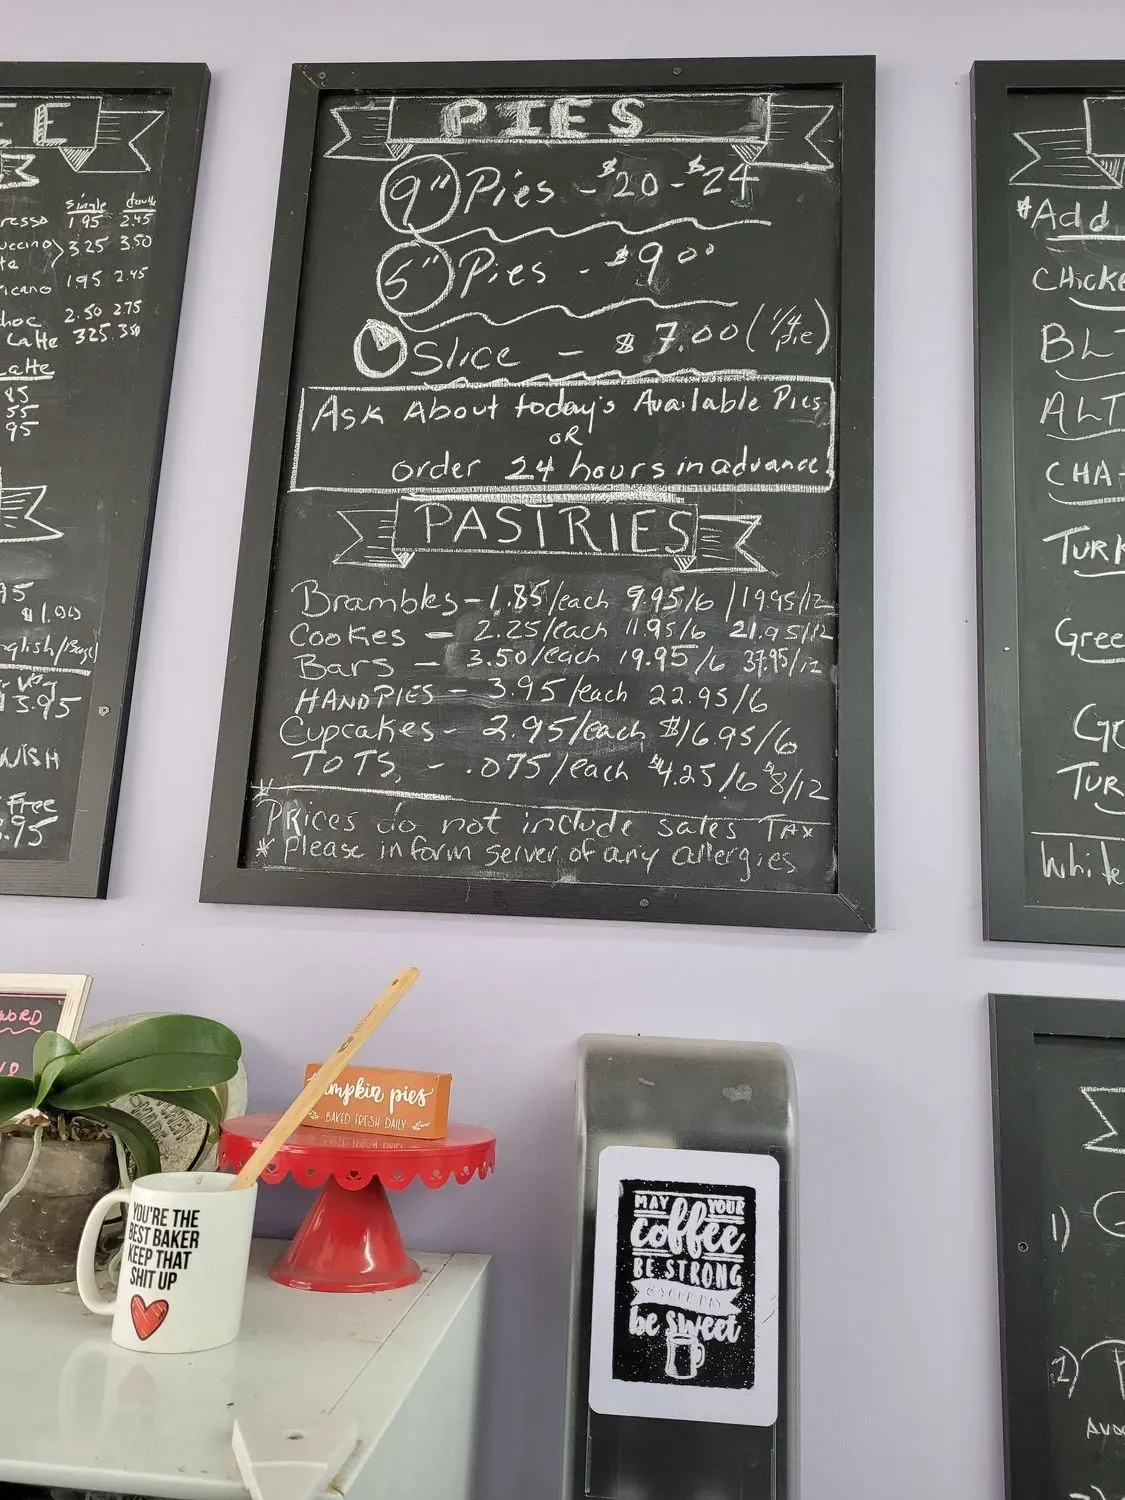 E E
single double
1.95 2.45
3.25 3.50
1.95 2.45
2.50 2.75
Latte 3.25 3.50
Latte
85
55
95
95
$1.00
3.95
WISH
Free
.95
PIES
9" Pies - $20 - $24
6" Pies - $9.00
Slice - $7.00 (1/4 pie)
Ask About today's Available Pies
OR
order 24 hours in advance!
PASTRIES
Brambles - 1.85/each 9.95/6 | 19.95/12
Cookes - 2.25/each 11.95/6 21.95/12
Bars - 3.50/each 19.95/6 37.95/12
HANDPIES - 3.95/each 22.95/6
Cupcakes - 2.95/each $16.95/6
TOTS, - .075/each $4.25/6 $8/12
* Prices do not include sales TAX
* Please inform server of any allergies
Add
CHicke
BLT
ALT
CHA
TURK
Gree
TUR
White
1)
2)
WORD
pumpkin pies
BAKED FRESH DAILY
YOU'RE THE
BEST BAKER
KEEP THAT
SHIT UP
MAY YOUR
coffee
BE STRONG
be sweet